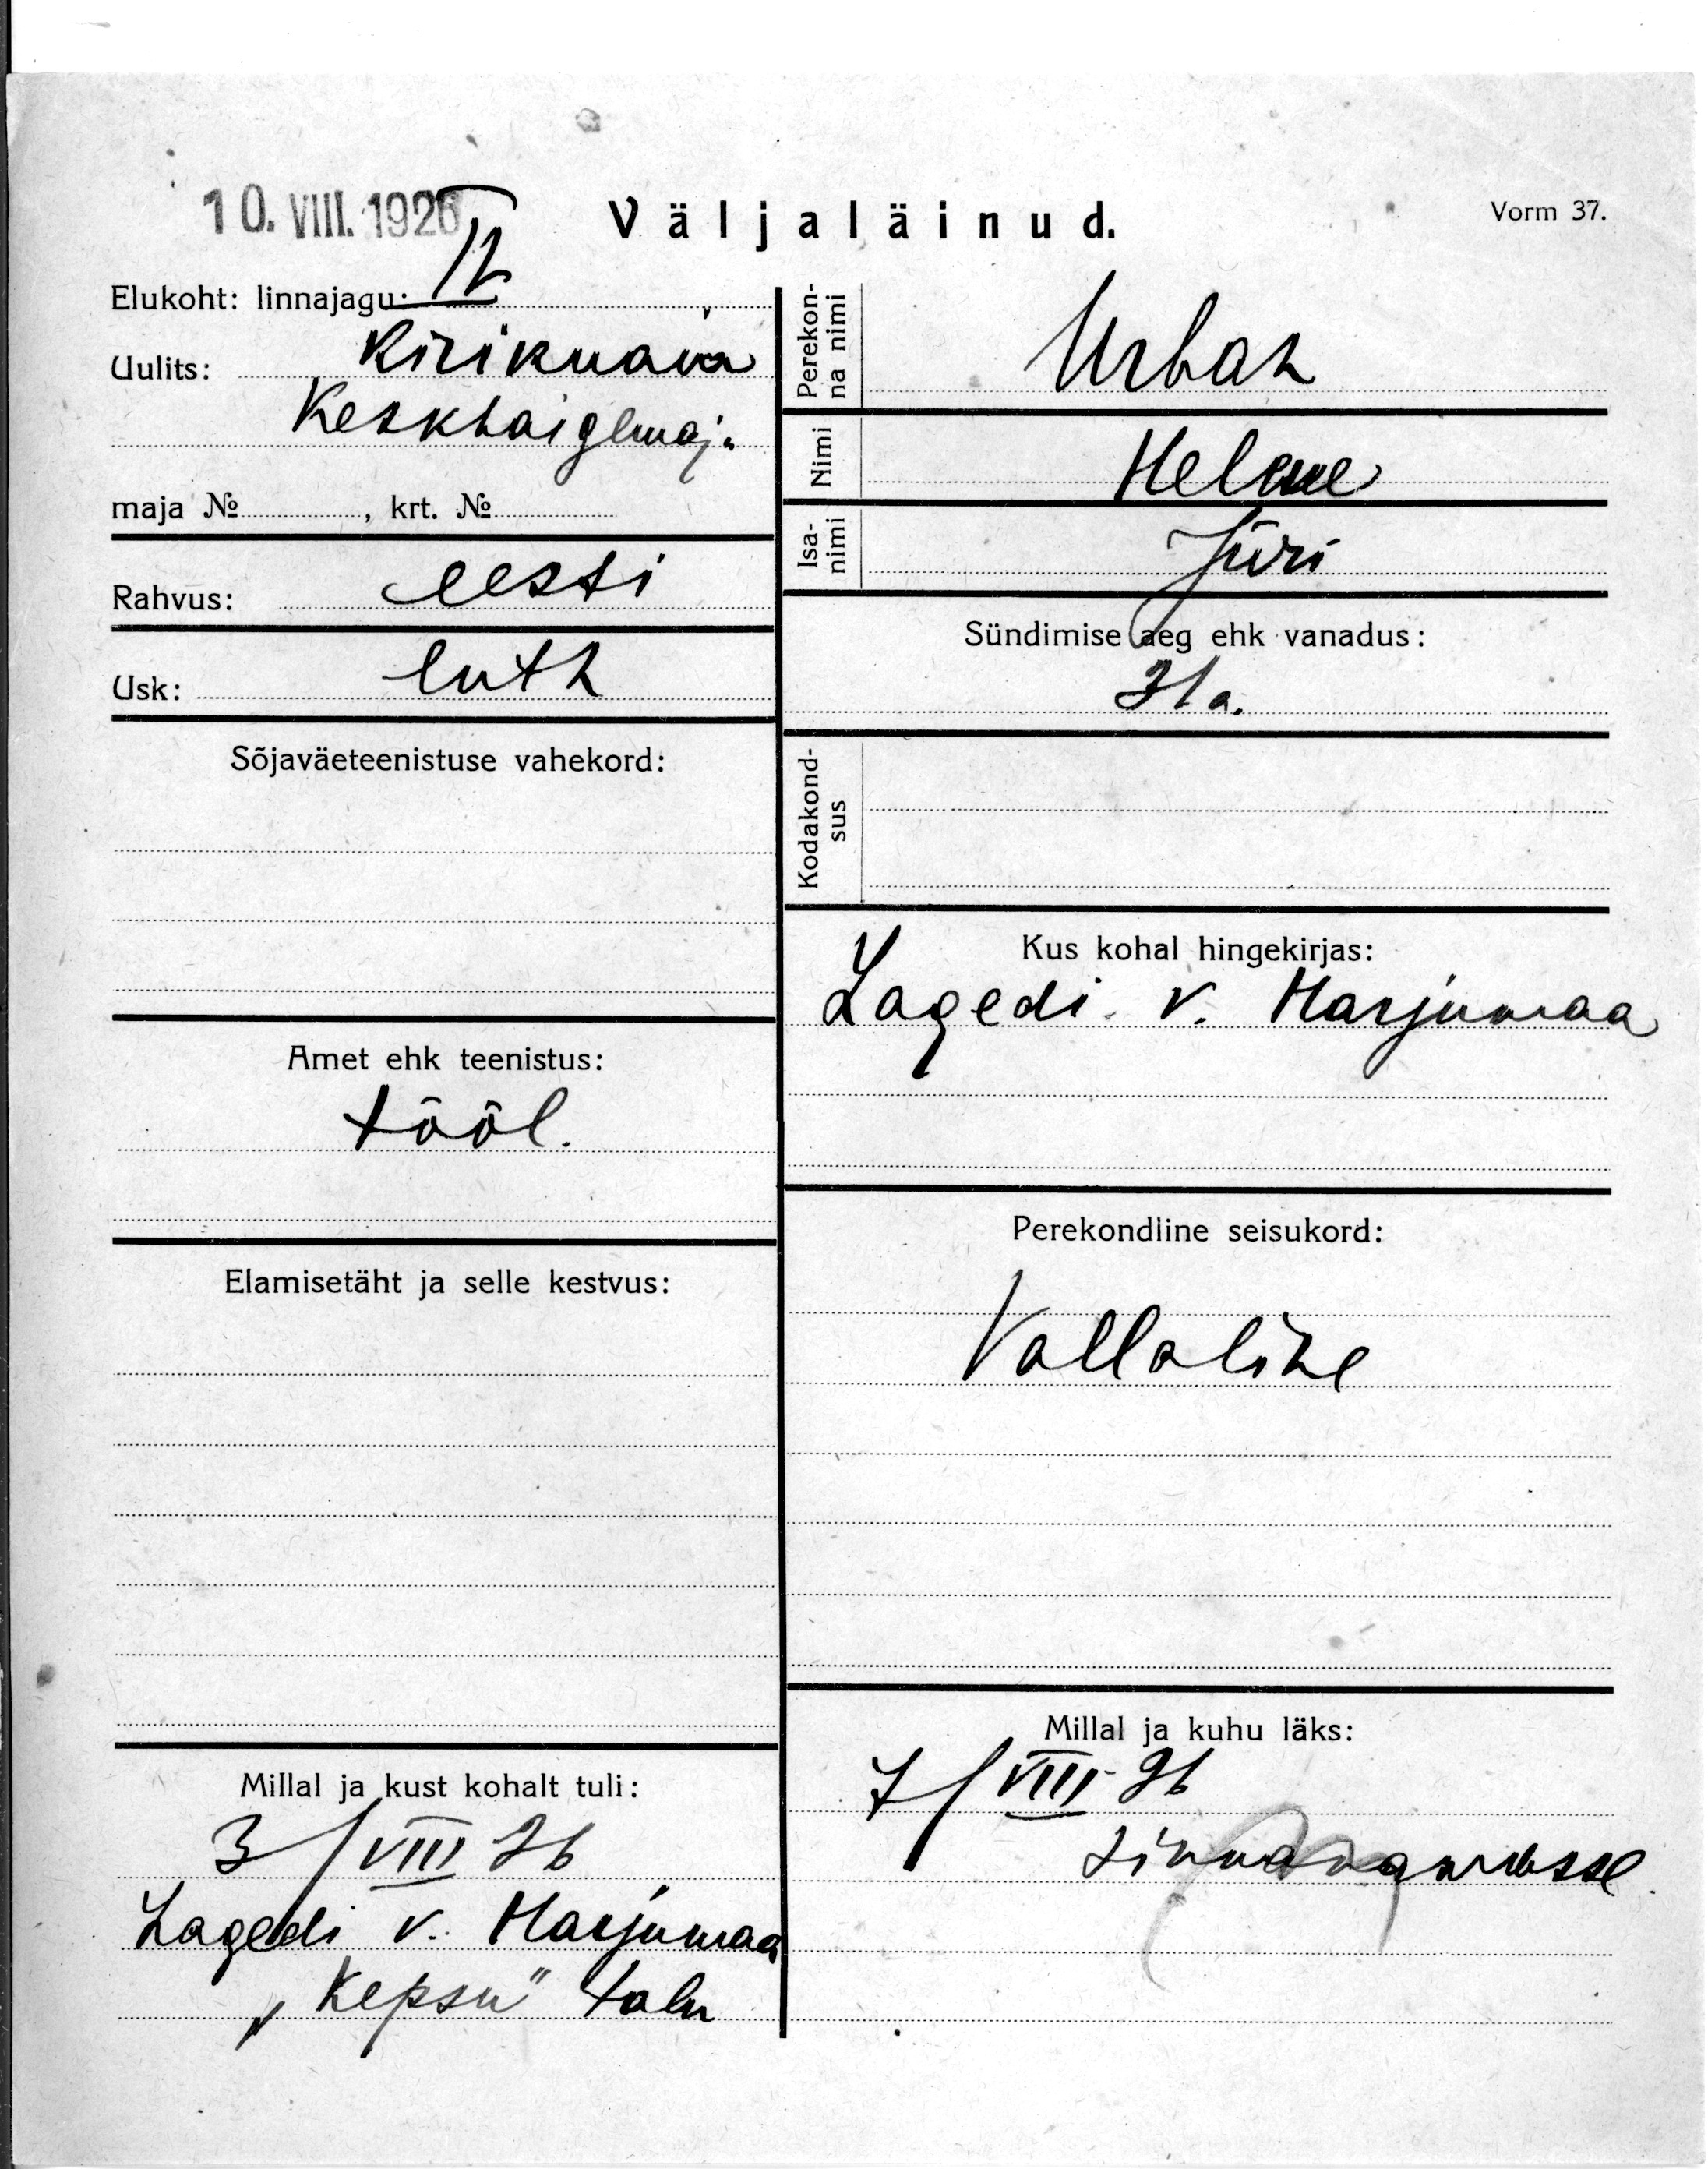 10. VIII. 1926
Väljaläinud.
Vorm 37.
Elukoht: linnajagu: IV
Uulits: Kirikuaia
Keskhaigemaj.
maja №, krt. №
Rahvus: eesti
Usk: luth
Sõjaväeteenistuse vahekord:
Amet ehk teenistus:
tööl.
Elamisetäht ja selle kestvus:
Millal ja kust kohalt tuli:
3/VIII 26
Lagedi v. Harjumaa
„Kepsu" talu
Perekonna nimi
Urban
Nimi
Helene
Isanimi
Jüri
Sündimise aeg ehk vanadus:
31 a.
Kodakondsus
Kus kohal hingekirjas:
Lagedi v. Harjumaa
Perekondline seisukord:
Vallaline
Millal ja kuhu läks:
7/VIII 26